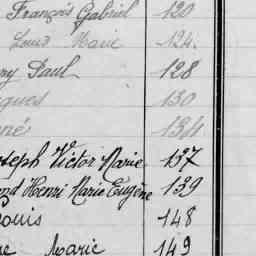 François Gabriel 120
Louis Marie 124
ny Paul 128
ques 130
né 134
oseph Victor Marie 137
nd Henri Marie Eugène 139
Louis 148
Marie 149